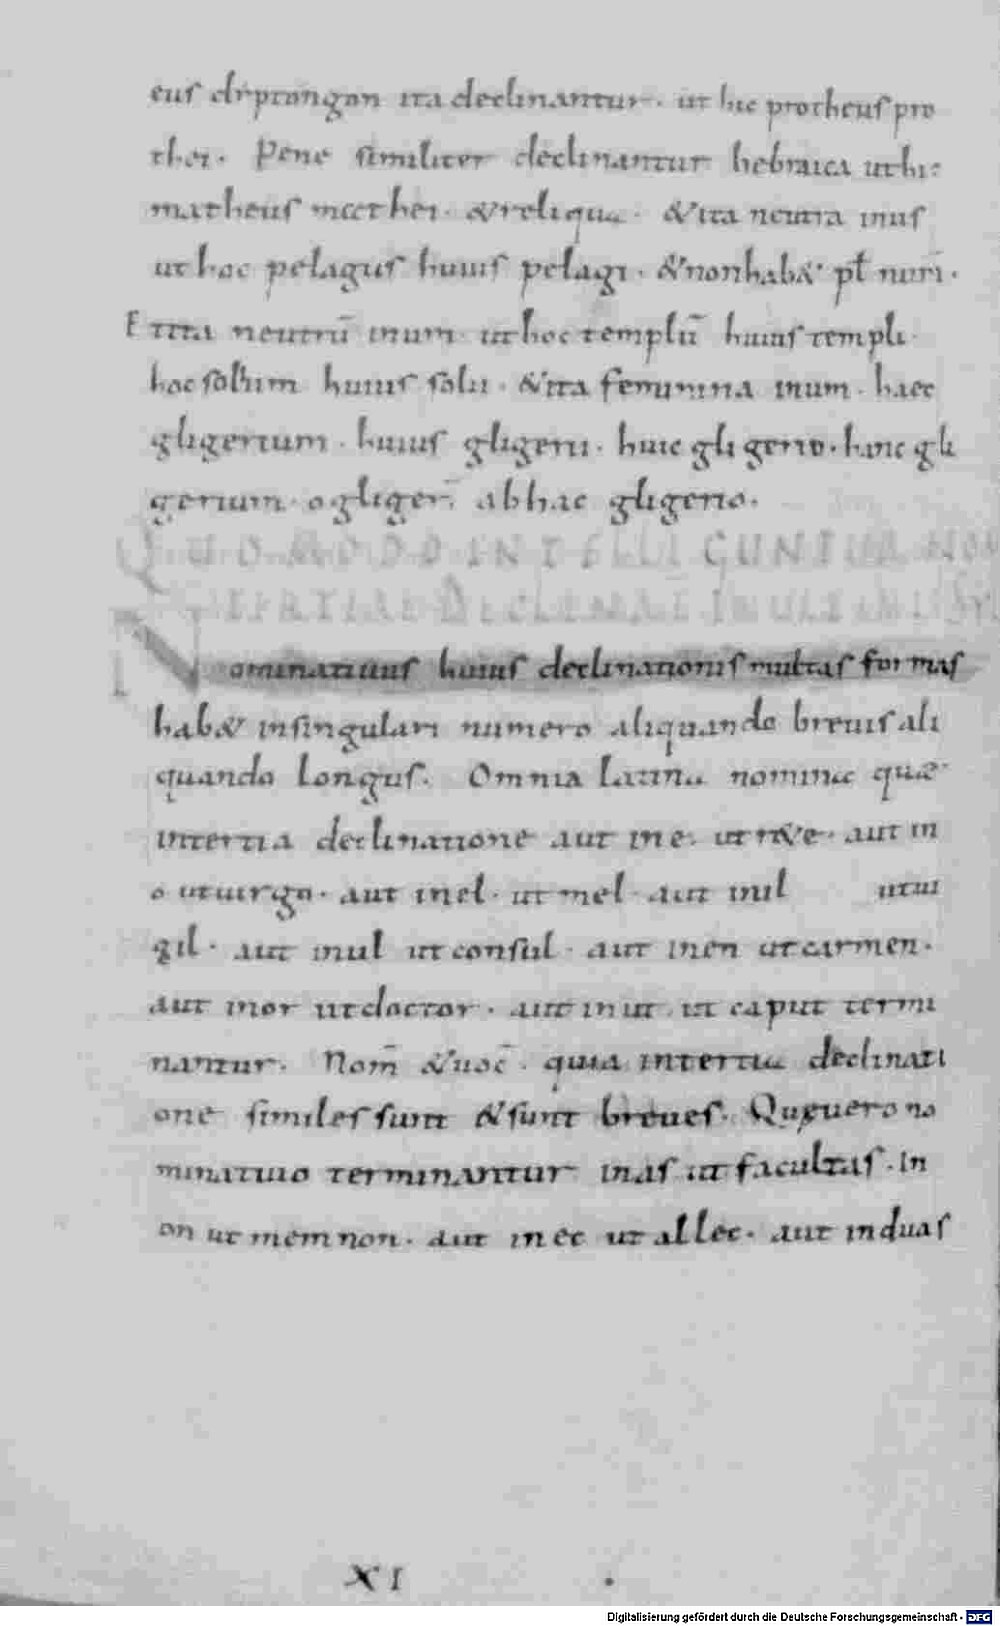 eus diptongon ita declinantur. ut hic protheus pro
thei. Pene similiter declinantur hebraica ut hic
matheus matthei. & reliqua. & ita neutra in us
ut hoc pelagus huius pelagi. & non hab&. pł num̄.
Et ita neutrū in um. ut hoc templū huius templi.
hoc solium huius solii. & ita feminina in um. haec
gligerium. huius gligerii. huic gligerio. hanc gli
gerium. o gliger̄. ab hac gligerio.
QUOMODO INTELLIGUNTUR NOM
TERTIAE DECLINAT IN
Nominatiuus huius declinationis multas formas
hab& in singulari numero aliquando breuis ali
quando longus. Omnia latina nomina quae
in tertia declinatione aut in e. ut r&e. aut in
o ut uirgo. aut in el. ut mel. aut in il ut ui
gil. aut in ul ut consul. aut in en ut carmen.
aut in or ut doctor. aut in ut ut caput termi
nantur. Nom̄ & uoc̄. quia in tertia declinati
one similes sunt & sunt breues. Que uero no
minatiuo terminantur in as ut facultas. In
on ut memnon. aut in ec ut allec. aut in duas
XI
Digitalisierung gefördert durch die Deutsche Forschungsgemeinschaft - DFG